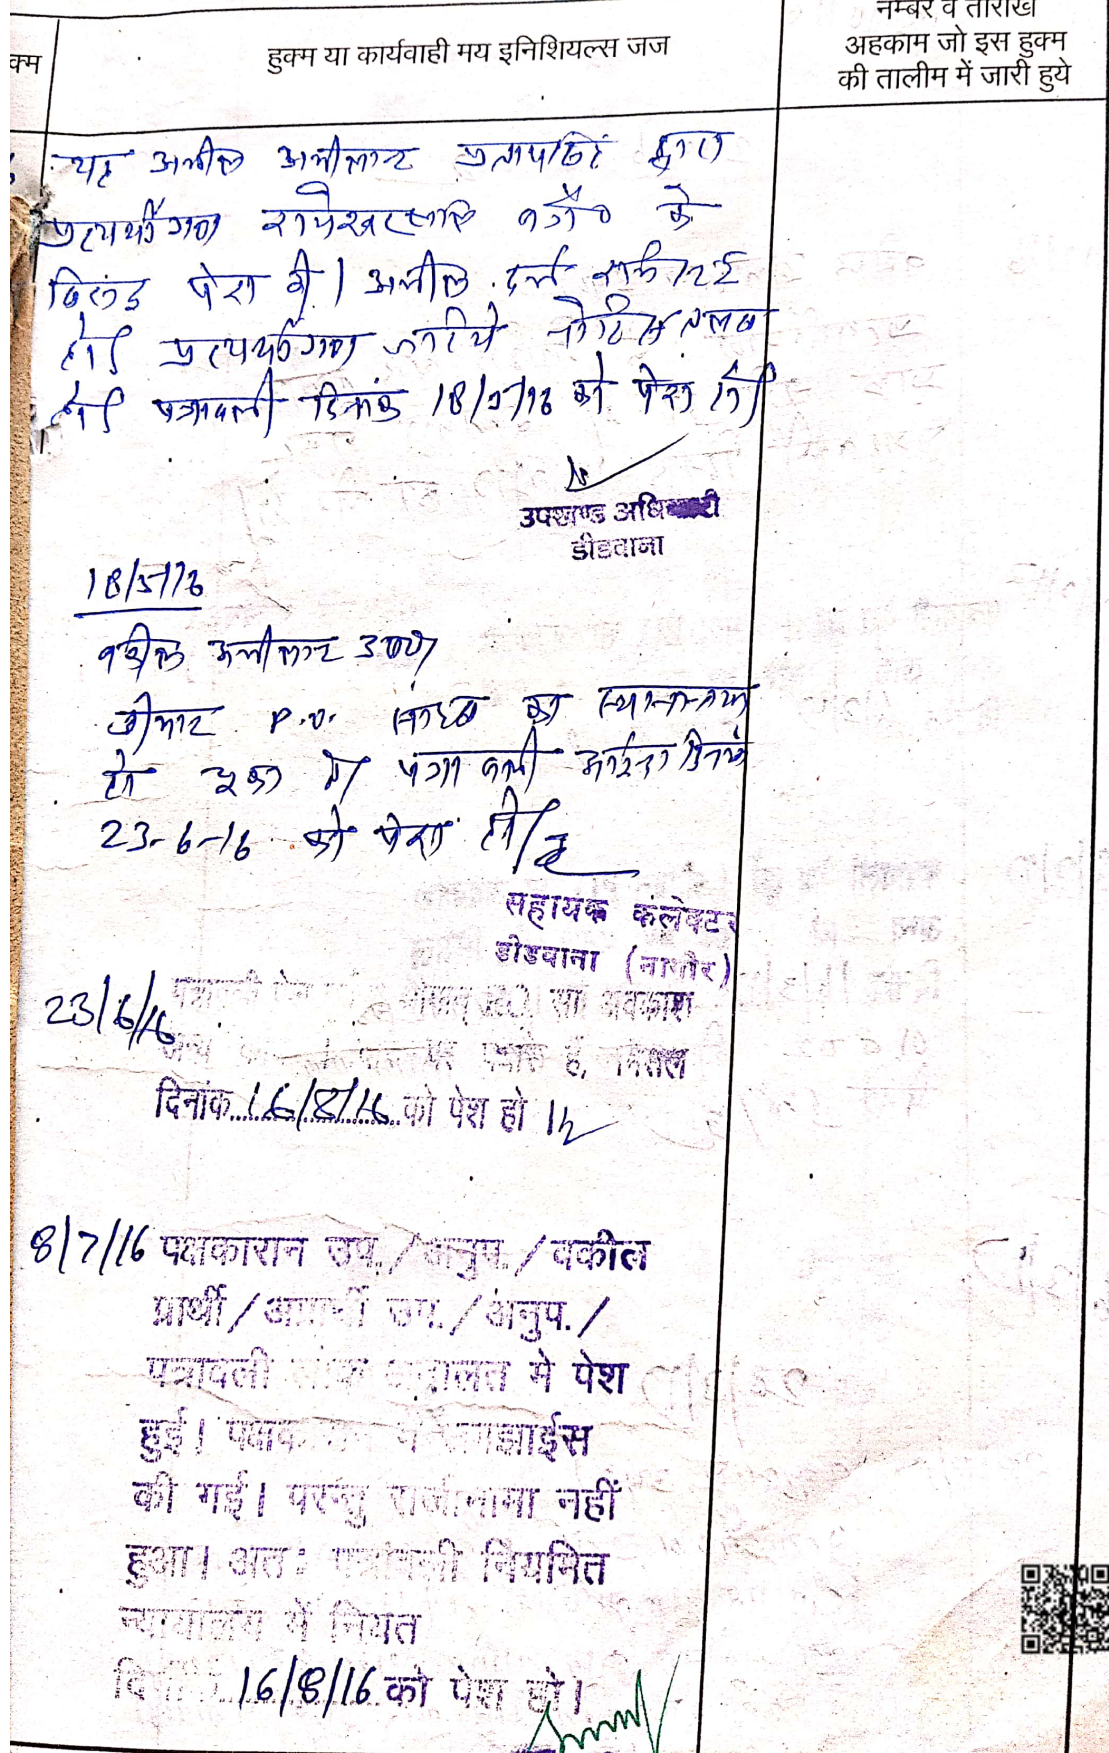 नम्बर व तारीख
क्म हुक्म या कार्यवाही मय इनिशियल्स जज अहकाम जो इस हुक्म
की तालीम में जारी हुये
यह अपील अपीलान्ट द्वारा
प्रत्यर्थीगण वगै० के
विरूद्ध पेश की। अपील दर्ज
हो। प्रत्यर्थीगण जरिये नोटिस तलब
हो। पत्रावली दिनांक 18/5/16 को पेश हो।
उपखण्ड अधिकारी
डीडवाना
18/5/16
वकील अपीलान्ट उप०
श्रीमान P.O. का स्थानान्तरण
हो चुका है। पत्रावली आईन्दा दिनांक
23-6-16 को पेश हो।
सहायक कलेक्टर
डीडवाना (नागौर)
23/6/16 पत्रावली पेश सा. अवकाश
पर पधारे हैं, मिसल
दिनांक 16/8/16 को पेश हो।
8/7/16 पक्षकारान उप./अनुप./वकील
प्रार्थी/अप्रार्थी उप./अनुप./
पत्रावली लोक अदालत मे पेश
हुई। पक्षकारान में समझाईस
की गई। परन्तु राजीनामा नहीं
हुआ। अतः पत्रावली नियमित
न्यायालय में नियत
दिनांक 16/8/16 को पेश हो।